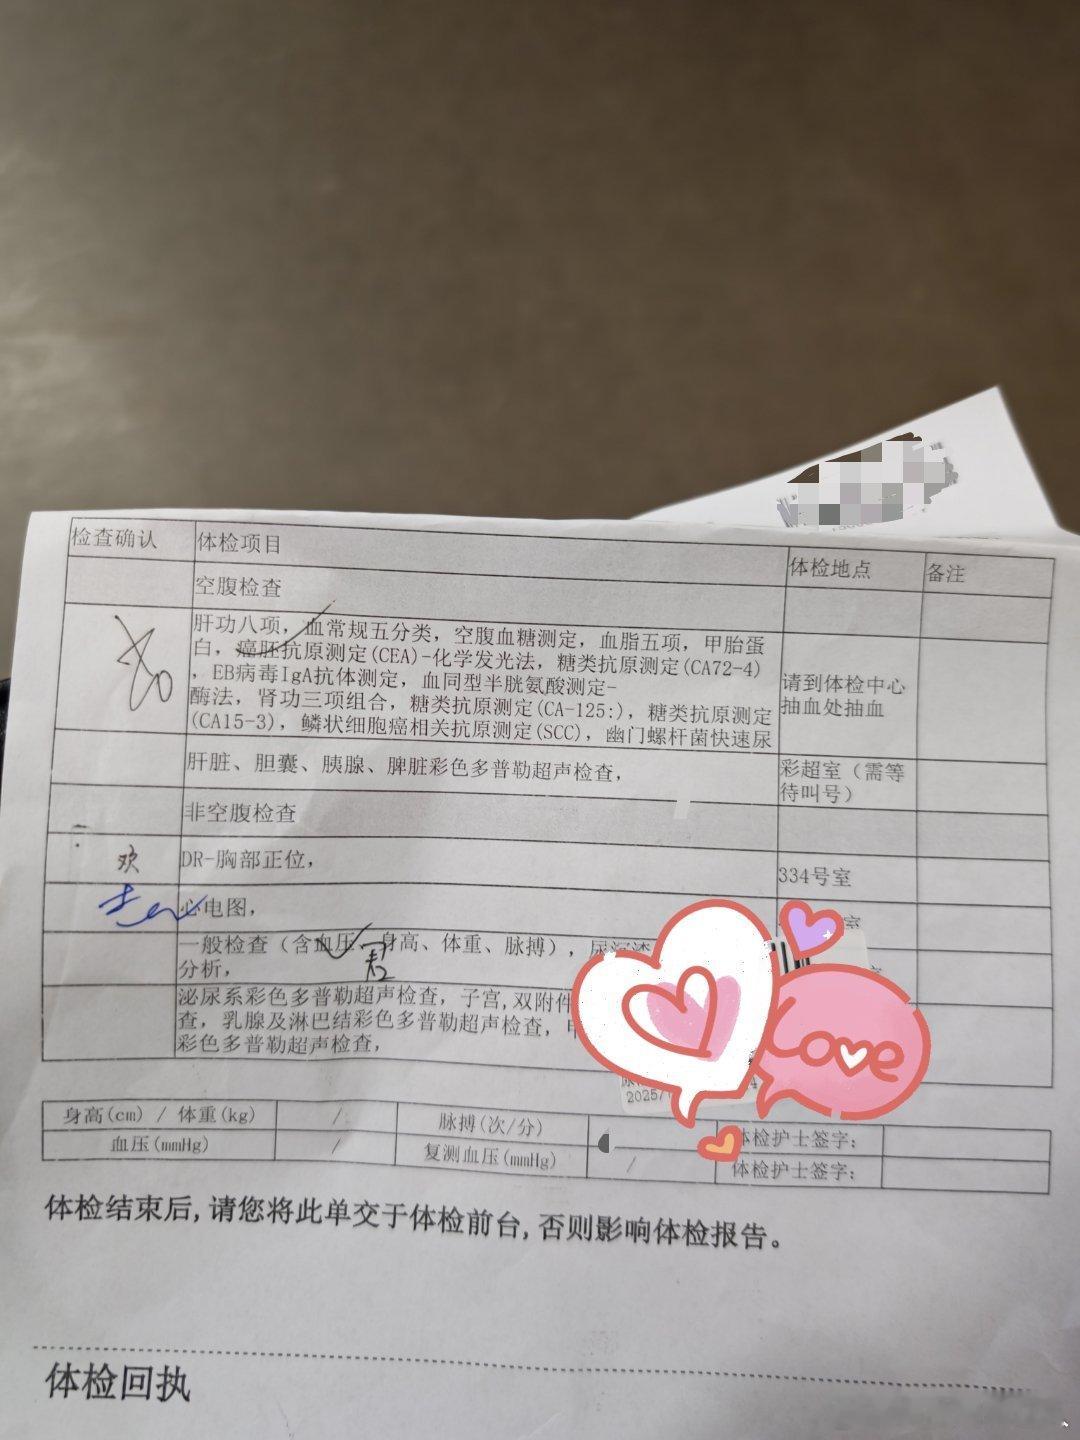 检查确认 体检项目 体检地点 备注
空腹检查
肝功八项，血常规五分类，空腹血糖测定，血脂五项，甲胎蛋
白，癌胚抗原测定(CEA)-化学发光法，糖类抗原测定(CA72-4)
，EB病毒IgA抗体测定，血同型半胱氨酸测定-
酶法，肾功三项组合，糖类抗原测定(CA-125:)，糖类抗原测定
(CA15-3)，鳞状细胞癌相关抗原测定(SCC)，幽门螺杆菌快速尿
请到体检中心
抽血处抽血
肝脏、胆囊、胰腺、脾脏彩色多普勒超声检查，
彩超室（需等
待叫号）
非空腹检查
欢 DR-胸部正位， 334号室
心电图， 室
一般检查（含血压、身高、体重、脉搏），尿沉渣
分析，
泌尿系彩色多普勒超声检查，子宫,双附件
查，乳腺及淋巴结彩色多普勒超声检查，
彩色多普勒超声检查，
Love
2025/
身高(cm) / 体重(kg) / 脉搏(次/分) 体检护士签字：
血压(mmHg) / 复测血压(mmHg) / 体检护士签字：
体检结束后,请您将此单交于体检前台,否则影响体检报告。
体检回执